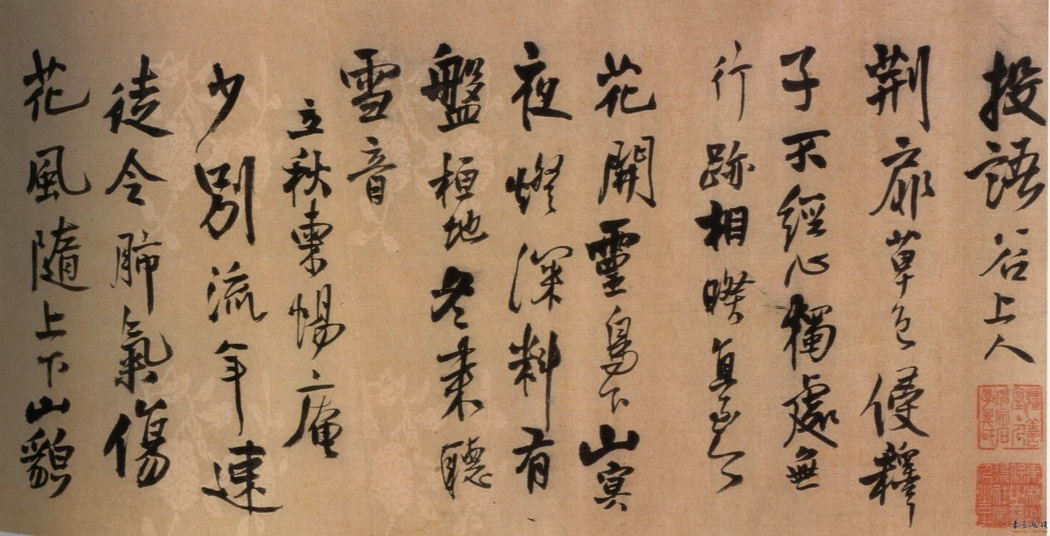 投語谷上人
荆扉草色侵釋
子不經心獨處無
行跡相暌直至今
花開靈鳥下山寞
夜燈深料有
盤桓地冬來聽
雪音
立秋柬惕庵
少別流年速
徒令肺氣傷
花風隨上下山貌